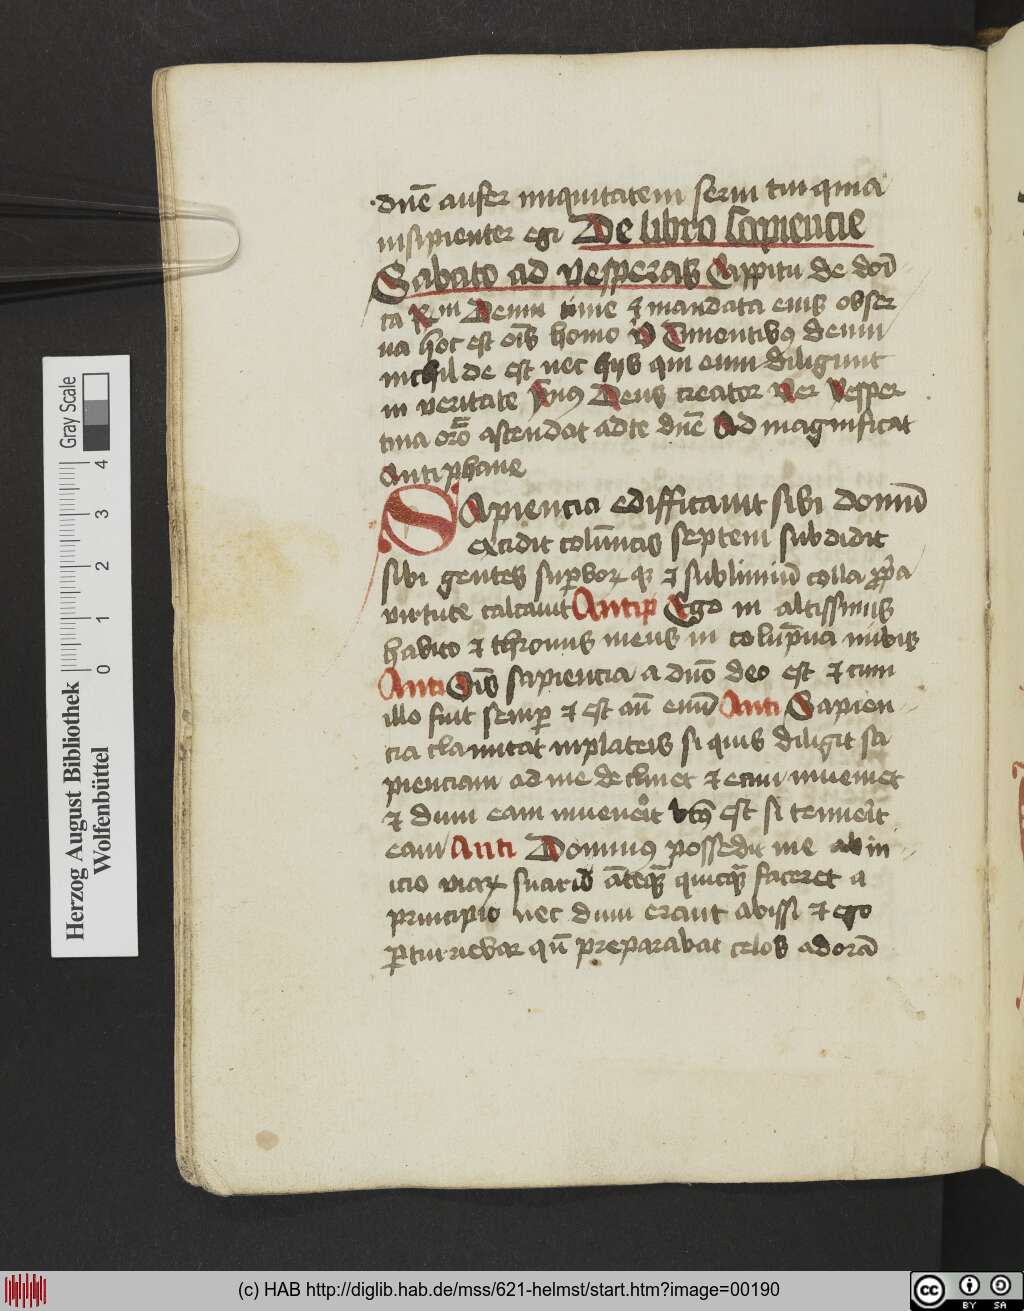 dnē aufer iniquitatem serui tui quia
insipienter egi De libro Sapiencie
Sabato ad vesperas Cappitu de doī
ca Deum time et mandata eius obser
ua hoc est oīs homo Timentibꝯ deum
nichil de est nec hijs qui eum diligunt
in veritate Deus creator Ver Vesper
tina orō ascendat ad te dnē Ad magnificat
Antiphane
SApiencia edifficauit sibi domū
excidit colūmas septem subdidit
sibi gentes suꝑborꝝ qꝫ et sublimiū colla ꝓpa
virtute calcauit Antip Ego in altissimis
habito et thronus meus in columpna nubis
Anti Oīs sapiencia a dno deo est et cum
illo fuit semꝑ et est an euū Anti Sapien
cia clamitat in plateis si quis diligit sa
pienciam ad me declinet et eam inueniet
et dum eam inuenerit btūs est si tenuerit
eam Anti Dominꝯ possedit me ab in
icio viarꝝ suarū āteqꝫ quicqꝫ faceret a
principio nec dum erant abissi et ego
ꝑturiebar qn̄ preparabat celos aderā
Herzog August Bibliothek
Wolfenbüttel
0 1 2 3 4
Gray Scale
(c) HAB http://diglib.hab.de/mss/621-helmst/start.htm?image=00190
cc BY SA